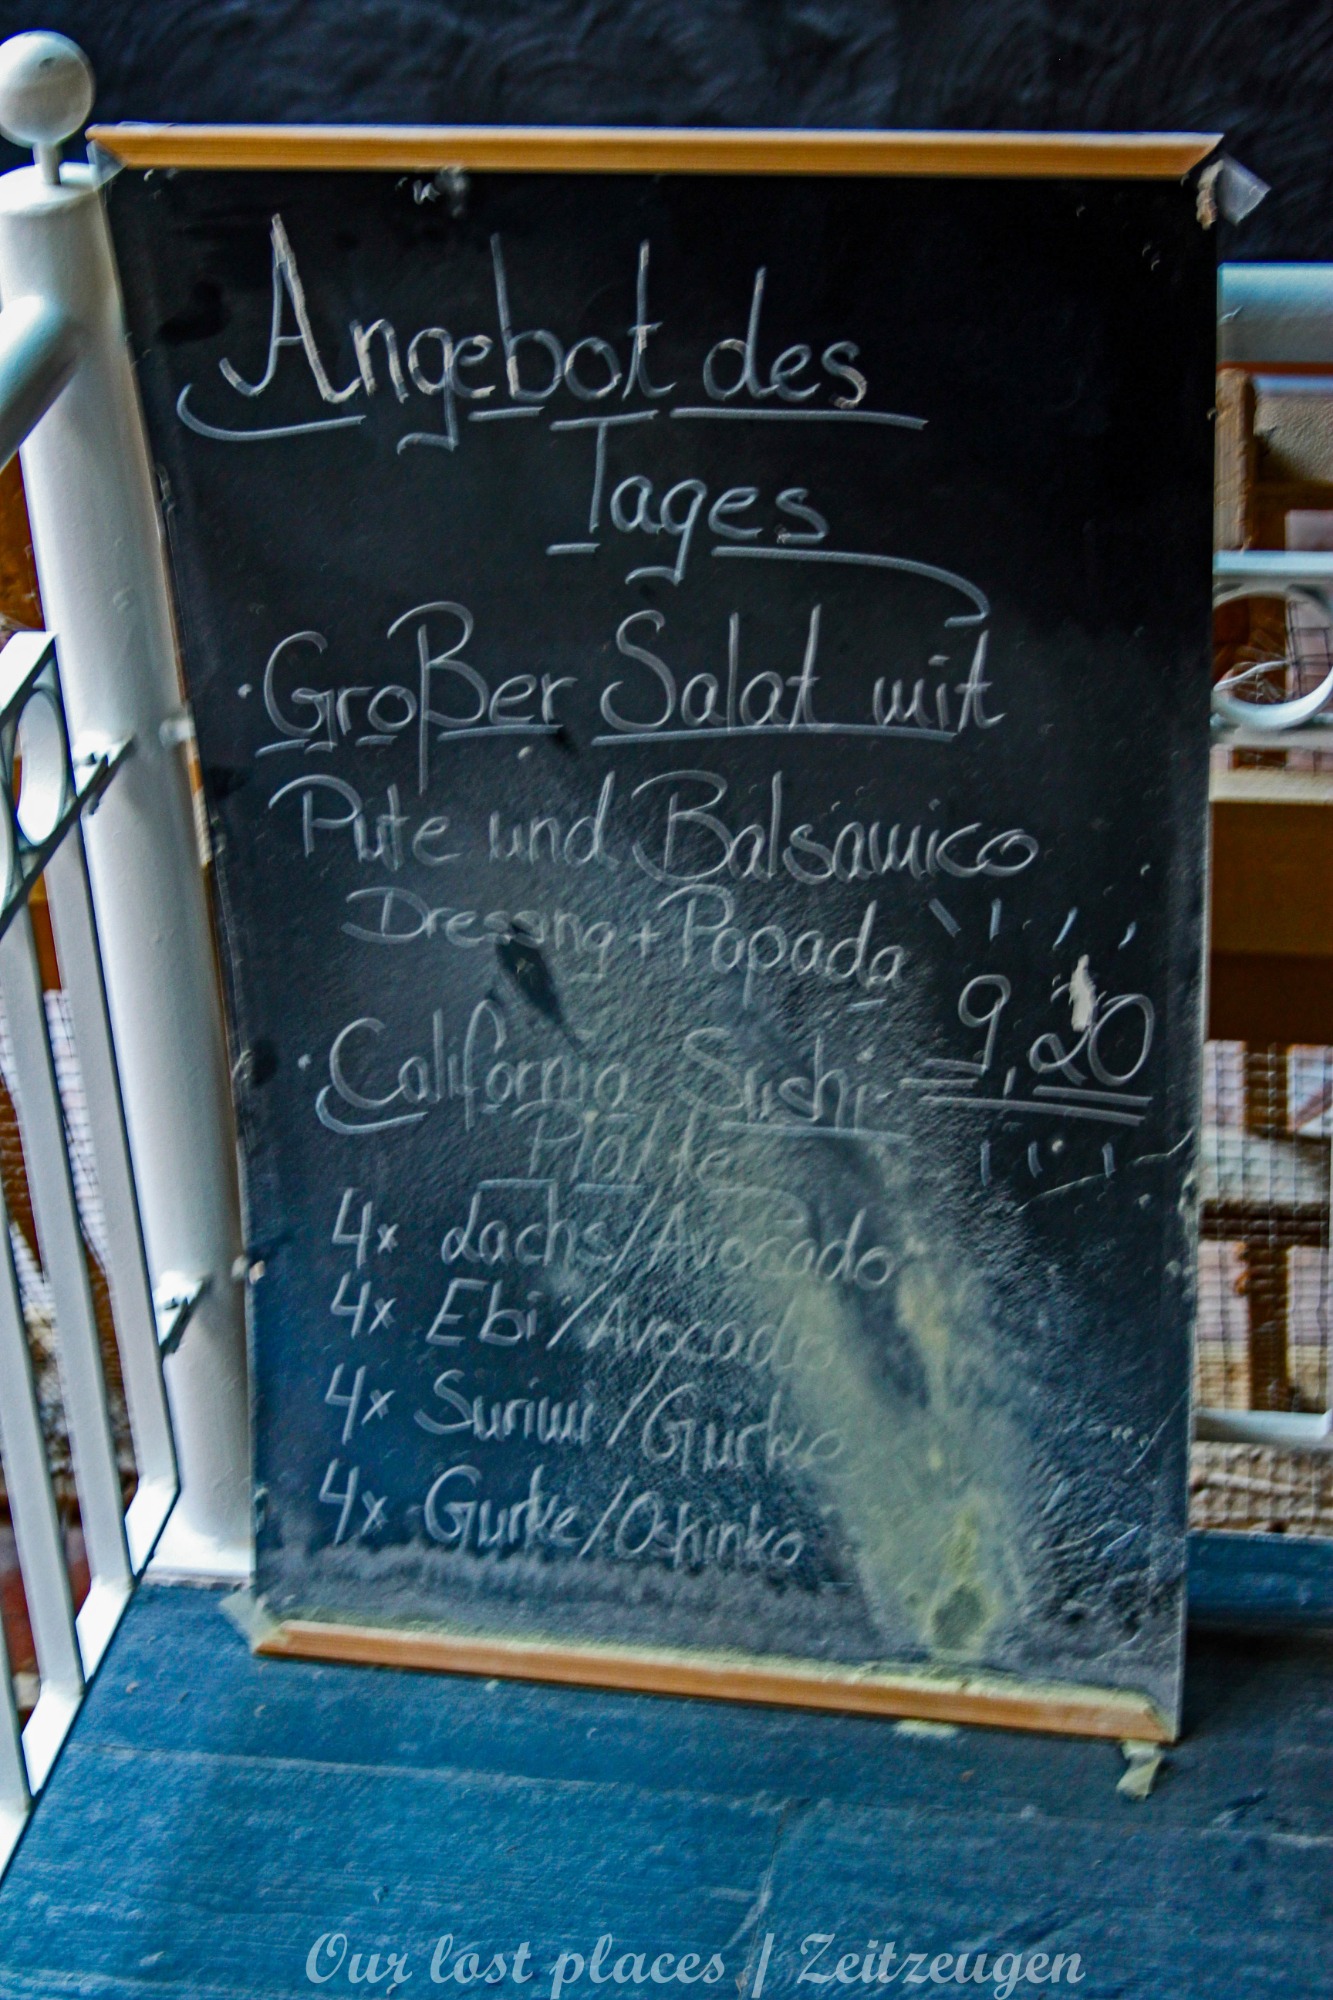 Angebot des
Tages
· Großer Salat mit
Pute und Balsamico
Dressing + Papada
9,20
· California Sushi
Platte
4x Lachs/Avocado
4x Ebi/Avocado
4x Surimi/Gurke
4x Gurke/Oshinko
Our lost places | Zeitzeugen